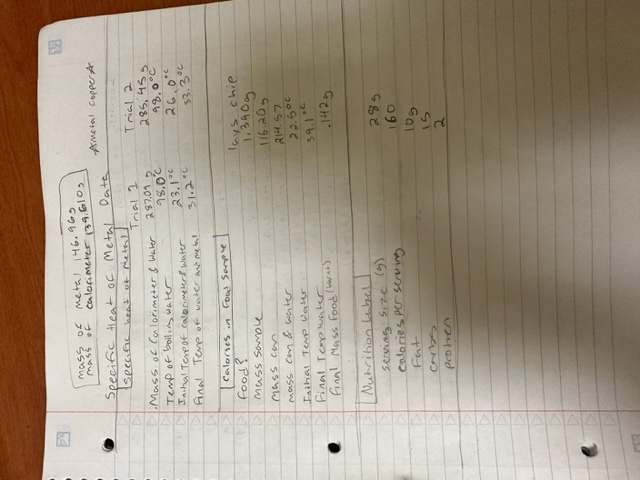 mass of metal 146.96g
mass of calorimeter 139.610g
*metal copper*
Specific Heat of Metal Data
Specific heat of metal
Trial 1 Trial 2
Mass of Calorimeter & Water 287.09 g 285.45 g
Temp of boiling water 98.0°C 98.0°C
Initial Temp of calorimeter & water 23.1°C 26.0°C
Final Temp of water and metal 31.2°C 33.3°C
Calories in food sample
food? lays chip
mass sample 1.390g
mass can 116.20g
mass can & water 214.57
Initial Temp water 22.5°C
Final Temp water 39.1°C
final Mass food (burnt) .142g
Nutrition Label
serving size (g) 28g
calories per serving 160
Fat 10g
carbs 15
protien 2